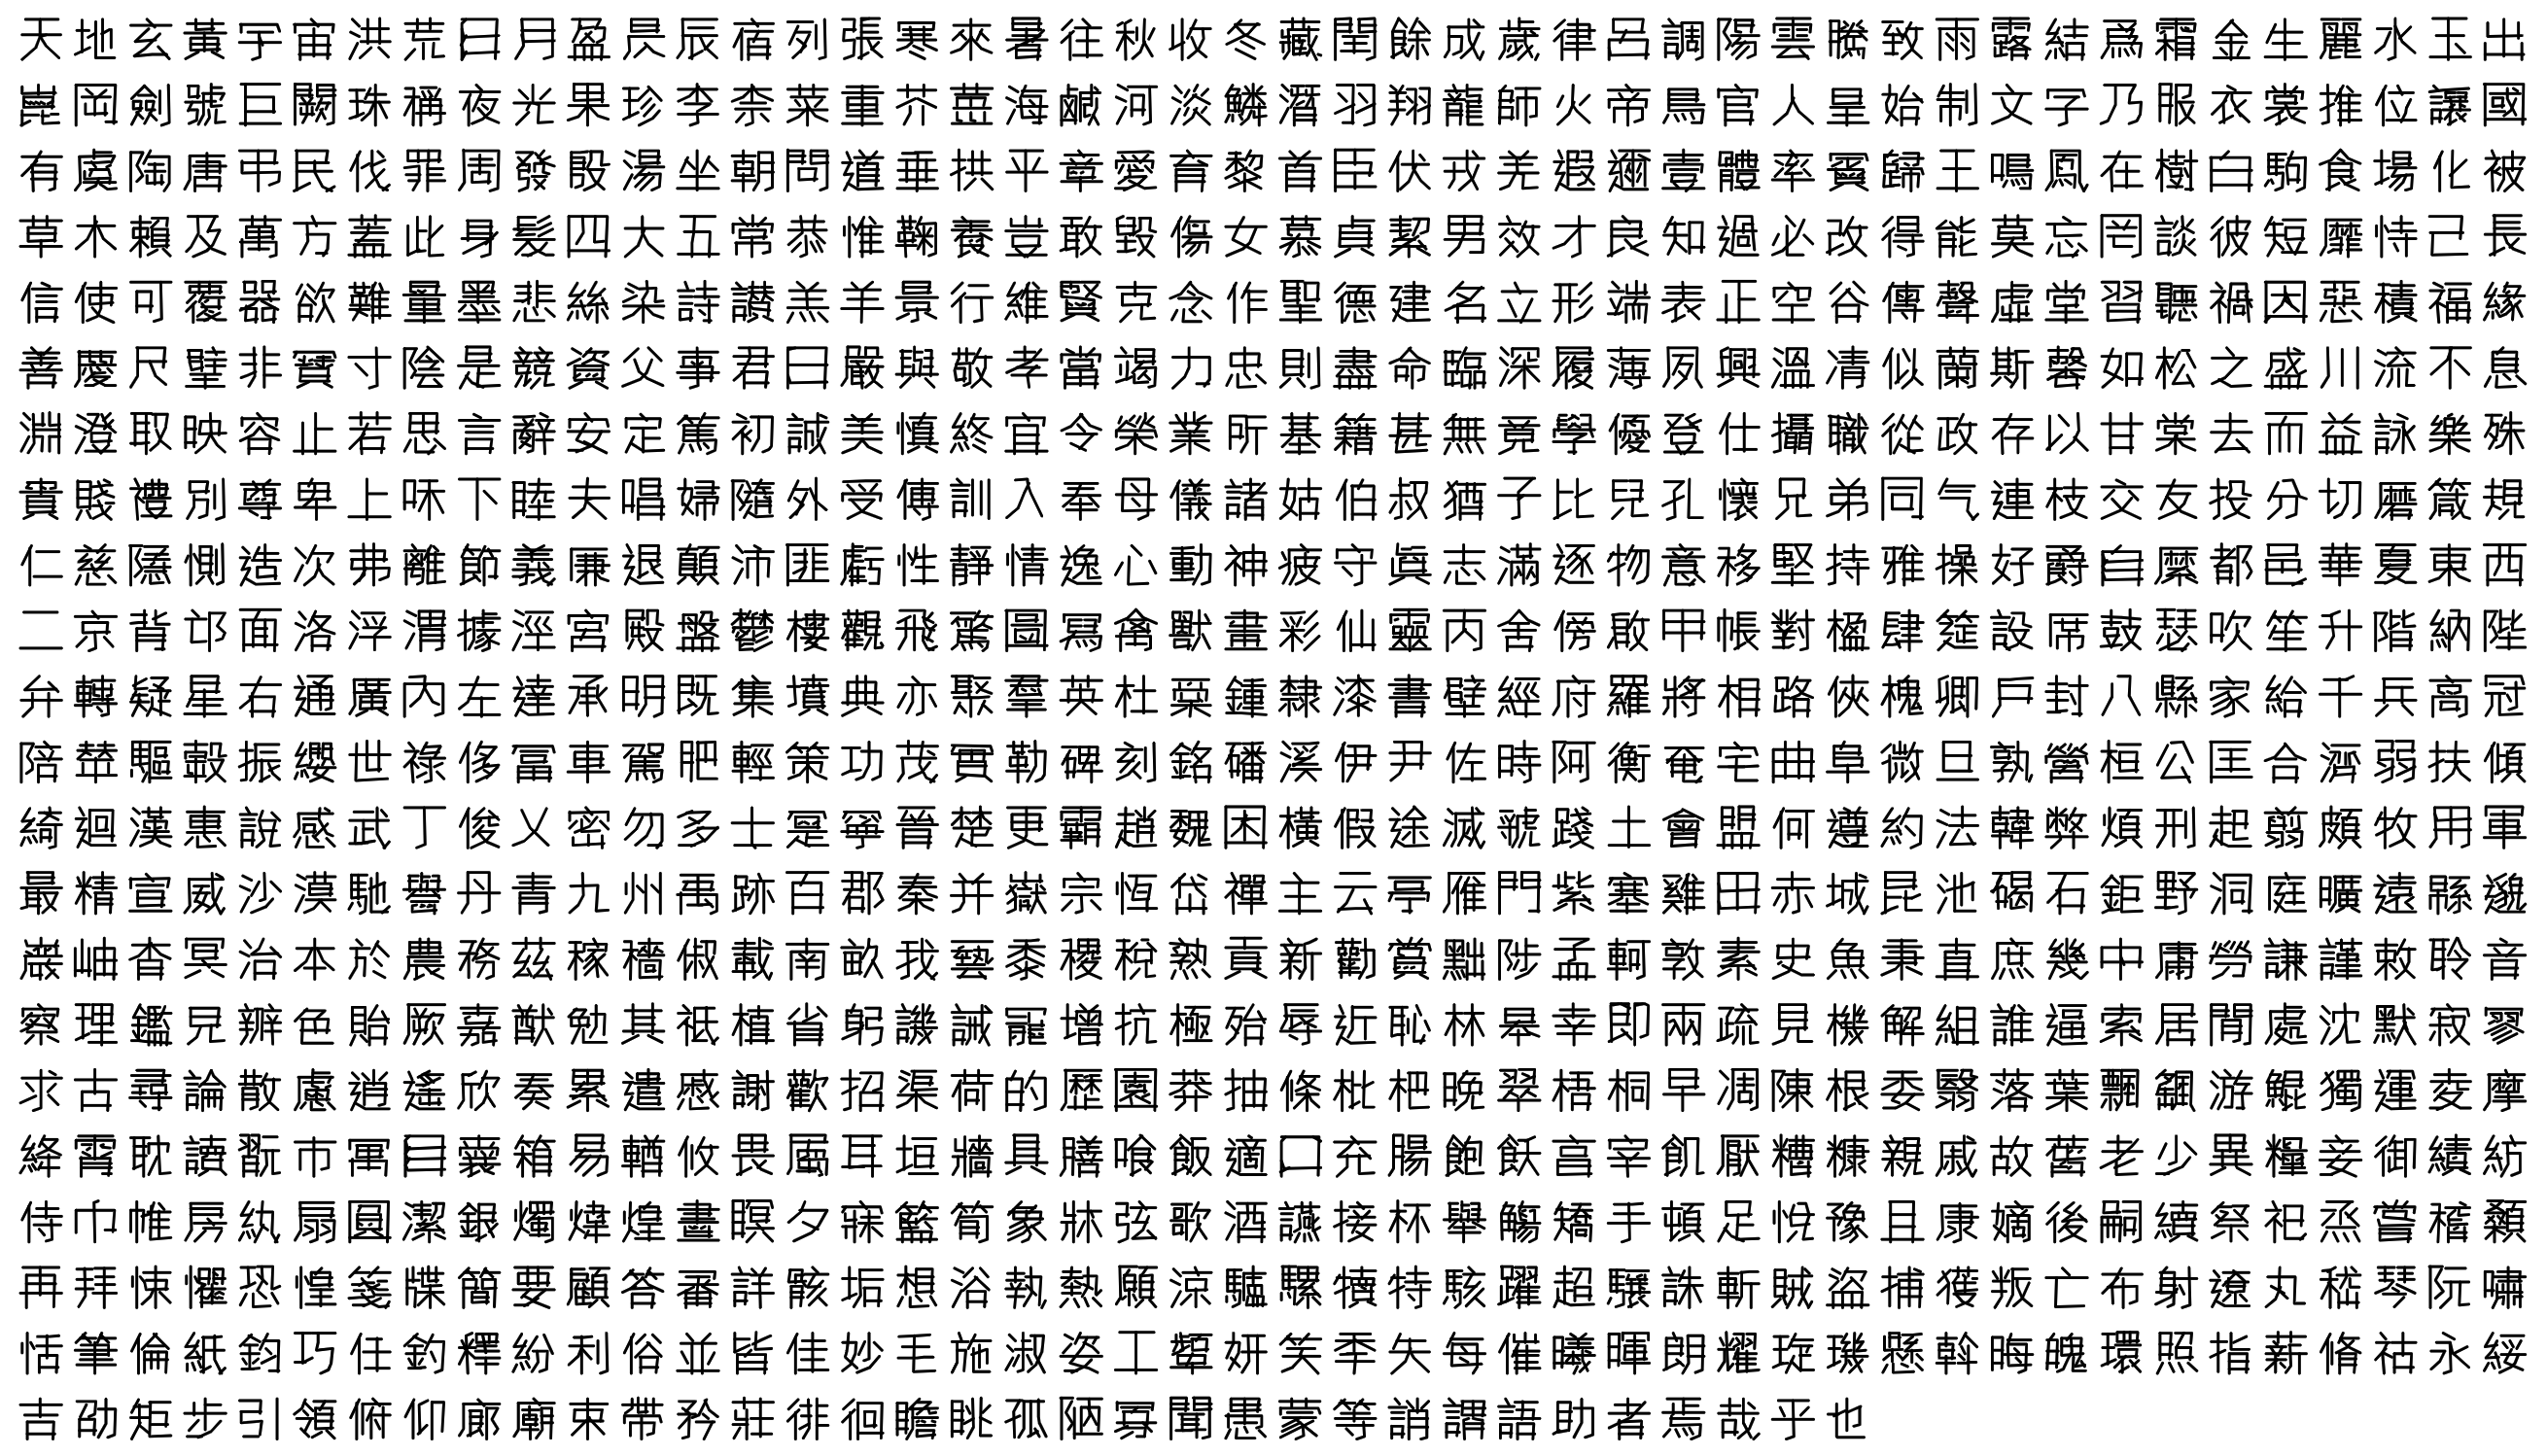 天地玄黃宇宙洪荒日月盈昃辰宿列張寒來暑往秋收冬藏閏餘成歲律呂調陽雲騰致雨露結爲霜金生麗水玉出
崑岡劍號巨闕珠稱夜光果珍李柰菜重芥薑海鹹河淡鱗潛羽翔龍師火帝鳥官人皇始制文字乃服衣裳推位讓國
有虞陶唐弔民伐罪周發殷湯坐朝問道垂拱平章愛育黎首臣伏戎羌遐邇壹體率賓歸王鳴鳳在樹白駒食場化被
草木賴及萬方蓋此身髮四大五常恭惟鞠養豈敢毀傷女慕貞絜男效才良知過必改得能莫忘罔談彼短靡恃己長
信使可覆器欲難量墨悲絲染詩讃羔羊景行維賢克念作聖德建名立形端表正空谷傳聲虛堂習聽禍因惡積福緣
善慶尺璧非寶寸陰是競資父事君曰嚴與敬孝當竭力忠則盡命臨深履薄夙興溫凊似蘭斯馨如松之盛川流不息
淵澄取映容止若思言辭安定篤初誠美慎終宜令榮業所基籍甚無竟學優登仕攝職從政存以甘棠去而益詠樂殊
貴賤禮別尊卑上和下睦夫唱婦隨外受傅訓入奉母儀諸姑伯叔猶子比兒孔懷兄弟同气連枝交友投分切磨箴規
仁慈隱惻造次弗離節義廉退顛沛匪虧性靜情逸心動神疲守眞志滿逐物意移堅持雅操好爵自縻都邑華夏東西
二京背邙面洛浮渭據涇宮殿盤鬱樓觀飛驚圖寫禽獸畫彩仙靈丙舍傍啟甲帳對楹肆筵設席鼓瑟吹笙升階納陛
弁轉疑星右通廣內左達承明既集墳典亦聚羣英杜稾鍾隸漆書壁經府羅將相路俠槐卿戶封八縣家給千兵高冠
陪輦驅轂振纓世祿侈富車駕肥輕策功茂實勒碑刻銘磻溪伊尹佐時阿衡奄宅曲阜微旦孰營桓公匡合濟弱扶傾
綺迴漢惠說感武丁俊乂密勿多士寔寧晉楚更霸趙魏困橫假途滅虢踐土會盟何遵約法韓弊煩刑起翦頗牧用軍
最精宣威沙漠馳譽丹青九州禹跡百郡秦并嶽宗恆岱禪主云亭雁門紫塞雞田赤城昆池碣石鉅野洞庭曠遠緜邈
巖岫杳冥治本於農務茲稼穡俶載南畝我藝黍稷稅熟貢新勸賞黜陟孟軻敦素史魚秉直庶幾中庸勞謙謹敕聆音
察理鑑皃辨色貽厥嘉猷勉其祗植省躬譏誡寵增抗極殆辱近恥林皋幸即兩疏見機解組誰逼索居閒處沈默寂寥
求古尋論散慮逍遙欣奏累遣慼謝歡招渠荷的歷園莽抽條枇杷晚翠梧桐早凋陳根委翳落葉飄颻游鯤獨運夌摩
絳霄耽讀翫市寓目囊箱易輶攸畏屬耳垣牆具膳喰飯適口充腸飽飫亯宰飢厭糟糠親戚故舊老少異糧妾御績紡
侍巾帷房紈扇圓潔銀燭煒煌晝瞑夕寐籃筍象牀弦歌酒讌接杯舉觴矯手頓足悅豫且康嫡後嗣續祭祀烝嘗稽顙
再拜悚懼恐惶箋牒簡要顧答審詳骸垢想浴執熱願涼驢騾犢特駭躍超驤誅斬賊盜捕獲叛亡布射遼丸嵇琴阮嘯
恬筆倫紙鈞巧任釣釋紛利俗並皆佳妙毛施淑姿工顰妍笑年矢每催曦暉朗耀琁璣懸斡晦魄環照指薪脩祜永綏
吉劭矩步引領俯仰廊廟束帶矜莊徘徊瞻眺孤陋寡聞愚蒙等誚謂語助者焉哉乎也